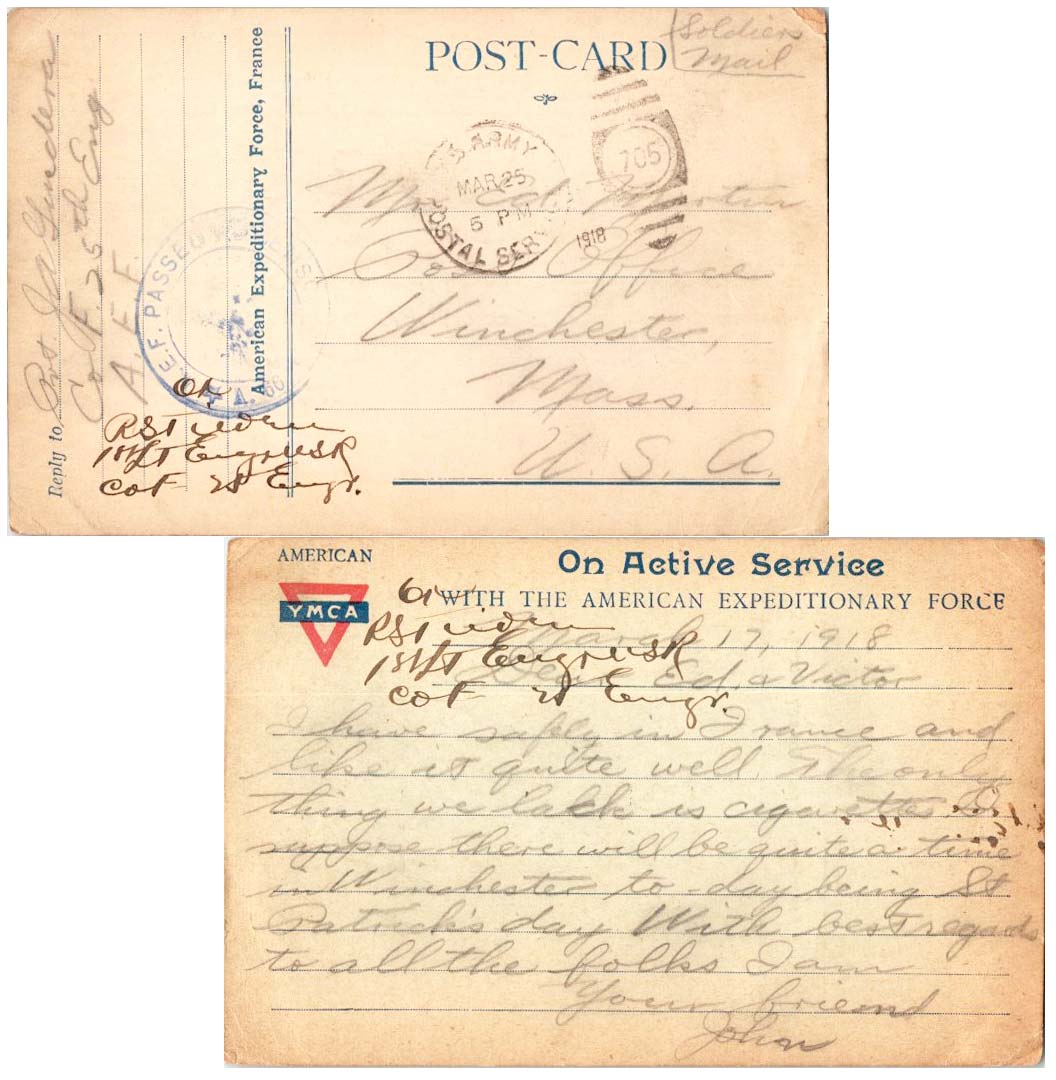 POST-CARD
Soldier
Mail
Reply to Pvt. J W
Co F. 25th Eng
A. E. F.
American Expeditionary Force, France
A.E.F. PASSED AS CENSORED
A.
U.S. ARMY
MAR 25
5 PM
POSTAL SERVICE
1918
705
Mr. Ed. Martin
Post Office
Winchester,
Mass.
U. S. A.
OK
1st Lt Engr USR
Co F 25 Engr.
AMERICAN
YMCA
On Active Service
WITH THE AMERICAN EXPEDITIONARY FORCE
OK
1st Lt Engr USR
Co F 25 Engr.
March 17, 1918
Dear Ed. & Victor
I have safely in France and
like it quite well. The only
thing we lack is cigarettes. I
suppose there will be quite a time
in Winchester to-day being St
Patrick's day With best regards
to all the folks I am
Your friend
John